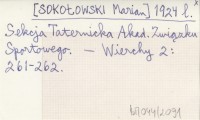 [SOKOŁOWSKI Marian] 1924 l. x
Sekcja Taternicka Akad. Związku
Sportowego. — Wierchy 2:
261-262.